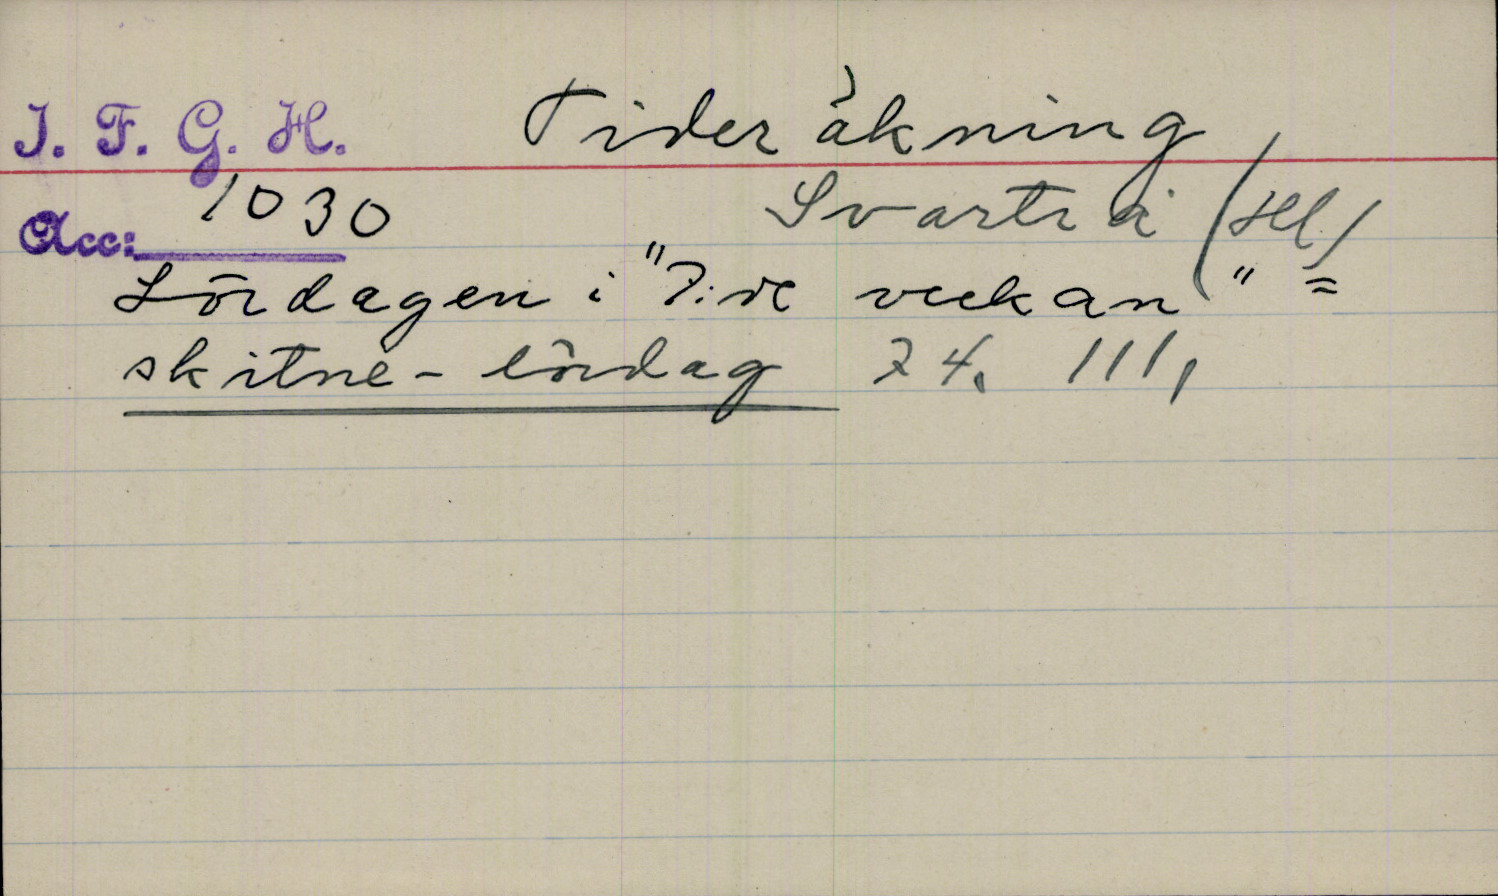 I. F. G. H. Tideräkning
Acc: 1030 Svartrå (Hl)
Lördagen i "7:de veckan" =
skitne-lördag 74. 111,